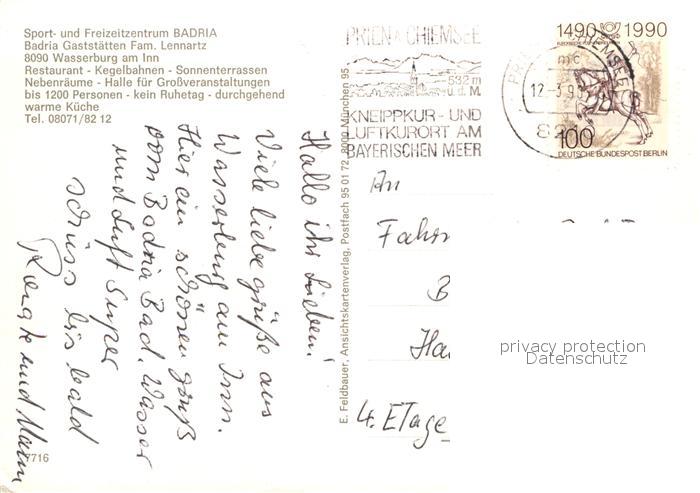 Sport- und Freizeitzentrum BADRIA
Badria Gaststätten Fam. Lennartz
8090 Wasserburg am Inn
Restaurant - Kegelbahnen - Sonnenterrassen
Nebenräume - Halle für Großveranstaltungen
bis 1200 Personen - kein Ruhetag - durchgehend
warme Küche
Tel. 08071/82 12
Hallo ihr Lieben!
Viele liebe grüße aus
Wasserburg am Inn.
Hier ein schönen gruß
vom Badria Bad. Wasser
und Luft Super
schüss bis bald
Renate und
7716
E. Feldbauer, Ansichtskartenverlag, Postfach 95 01 72, 8000 München 95
PRIEN A. CHIEMSEE
532 m
ü. d. M.
KNEIPPKUR- UND
LUFTKURORT AM
BAYERISCHEN MEER
12-3.90
1490 1990
100
DEUTSCHE BUNDESPOST BERLIN
An
Fahr
B
Ha
4. ETage
privacy protection
Datenschutz